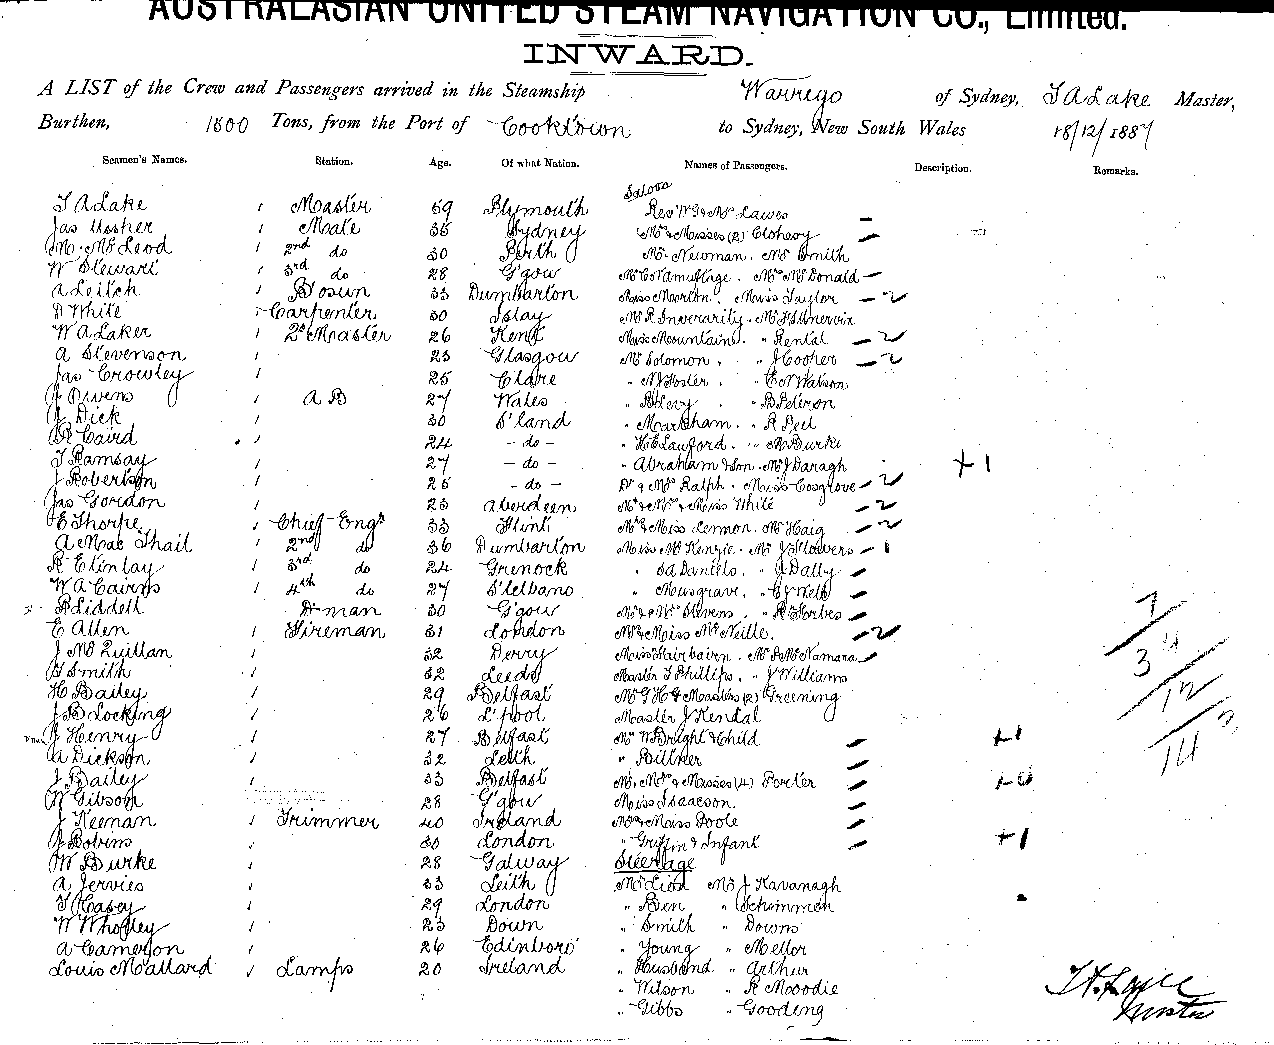 AUSTRALASIAN UNITED STEAM NAVIGATION CO., Limited.
INWARD.
A LIST of the Crew and Passengers arrived in the Steamship Warrego of Sydney, T A Lake Master,
Burthen, 1800 Tons, from the Port of Cooktown to Sydney, New South Wales 18/12/1887
Seamen's Names. Station. Age. Of what Nation. Names of Passengers. Description. Remarks.
Saloon
T A Lake 1 Master 59 Plymouth Rev W G & Mrs Lawes
Jas Ussher 1 Mate 35 Sydney Mr & Misses (2) Clohesy
M. McLeod 1 2nd do 30 Perth Mr. Newman. Mr Smith
W Stewart 1 3rd do 28 G'gow Mrs McDonald
A Leitch 1 Bosun 33 Dumbarton Miss Morton. Miss Taylor
D White 1 Carpenter 30 Islay Mr R Inverarity.
W A Laker 1 2d Master 26 Kent Miss Mountain. " Kental
A Stevenson 1 23 Glasgow Mr Solomon. " J Cooher
Jas Crowley 1 25 Clare " N J Foster. " E N Watson
J Owens 1 A B 27 Wales " B Levy " B Peterson
J Dick 1 30 S'land " Markham. " R Peel
R Caird 1 24 - do - " H E Lawford. " R Burke
T Ramsay 1 27 - do - " Abraham & Son. Mr J Daragh + 1
J Robertson 1 25 - do - Dr & Mrs Ralph. Miss Cosgrove 2
Jas Gordon 1 23 Aberdeen Mr & Mrs & Miss White 2
E Thorpe 1 Chief Engr 33 Flint Mr & Miss Lennon. Mr Haig 2
A MacPhail 1 2nd do 36 Dumbarton Miss McKenzie. Mr J Flowers 1
R E Finlay 1 3rd do 24 Grenock " S A Daniels. " J Dally
W A Cairns 1 4th do 27 St Elbans " Musgrave. " C J Nelk
R Liddell D-man 30 G'gow Mr & Mrs Stevens. " R Forbes
E Allen 1 Fireman 31 London Mr & Miss McNeille. 2
J McQuillan 1 32 Derry Miss Fairbairn. Mr P McNamara
G Smith 1 32 Leeds Master T Phillips. " J Williams
H Bailey 1 29 Belfast Mr G H & Masters (2) Greening
J B Locking 1 26 L'pool Master J Kendal
J Henry 1 27 Belfast Mr W Bright & Child + 1
A Dickson 1 32 Leith " Bittker
J Bailey 1 33 Belfast Mr, Mrs & Misses (4) Porter
W Gibson 1 28 G'gow Miss Isaacson.
J Keenan 1 Trimmer 40 Ireland Mr & Miss Poole
J Robins 1 30 London " Griffin & Infant + 1
W Burke 1 28 Galway Steerage
A Jervies 1 33 Leith McLeod Mr J Kavanagh
T Casey 1 29 London " Ben " Schimmen
W Wholley 1 23 Down " Smith " Downs
A Cameron 1 26 Edinboro' " Young " Mellor
Louis Mallard 1 Lamps 20 Ireland " Husband " Arthur
" Wilson " R Moodie
" Gibbs " Gooding
7
34
12
14
T A Lake
Master